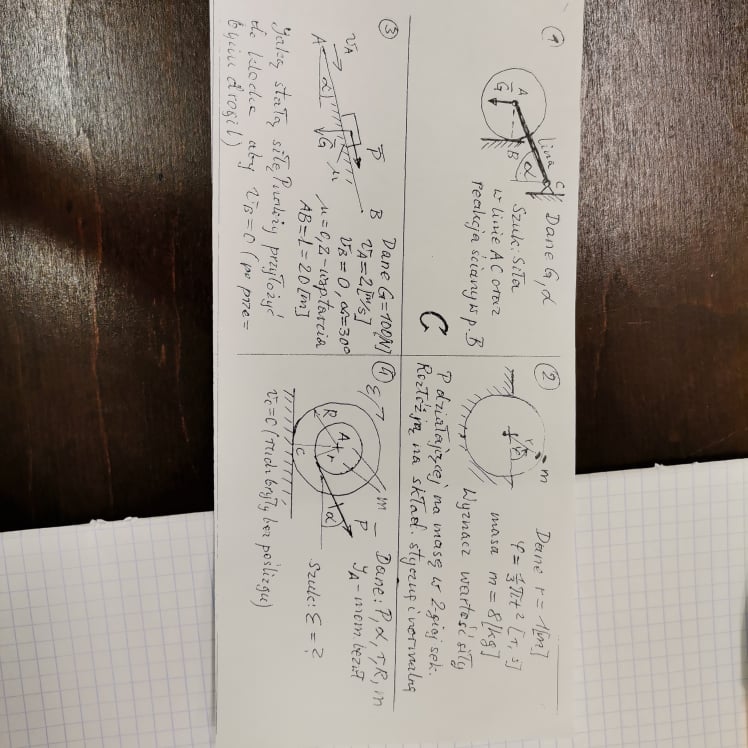 ①
lina
C
α
A
G
B
Dane G, α
Szuk: Siła
w linie AC oraz
reakcja ściany w p. B
C
②
m
r
φ
Dane r = 1[m]
φ = 1/3 πt² [r, s]
masa m = 8[kg]
Wyznacz wartość siły
P działającej na masę w 2-giej sek.
Rozłóż ją na skład. styczną i normalną
③
P
B
v_A
A
α
G
μ
Dane G=100[N]
v_A=2[m/s]
v_B=0, α=30°
μ=0,2-wsp.tarcia
AB=L=20[m]
Jaką stałą siłę P należy przyłożyć
do klocka aby v_B=0 (po prze=
byciu drogi l)
④
ε
m
A
r
R
C
P
α
Dane: P, α, r, R, m
J_A - mom. bezwł
Szuk: ε = ?
v_C=0 (ruch bryły bez poślizgu)